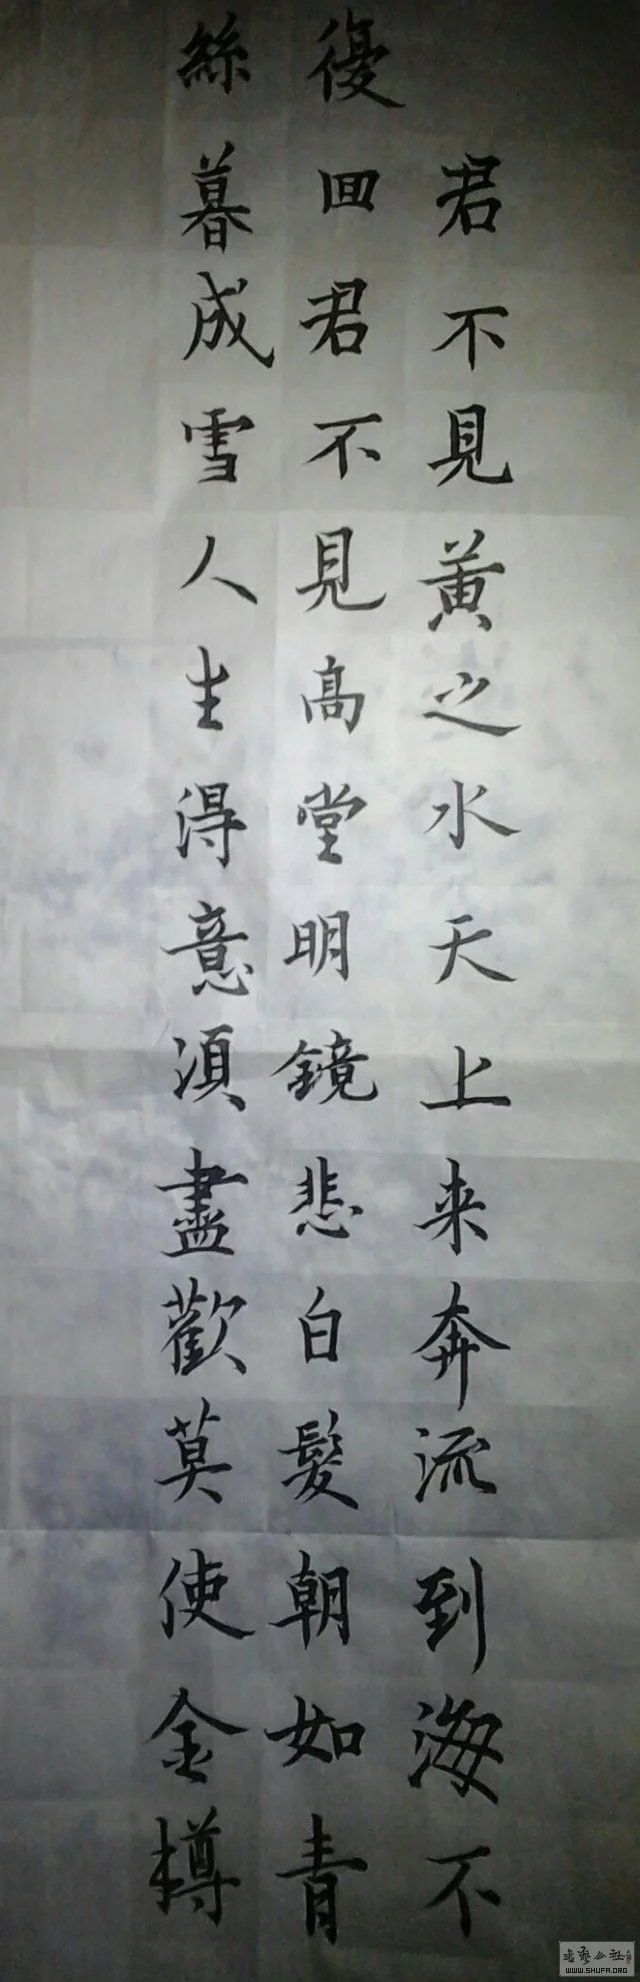 君不見黄之水天上来奔流到海不
復回君不見高堂明鏡悲白髮朝如青
絲暮成雪人生得意須盡歡莫使金樽
书艺公社
WWW.SHUFA.ORG